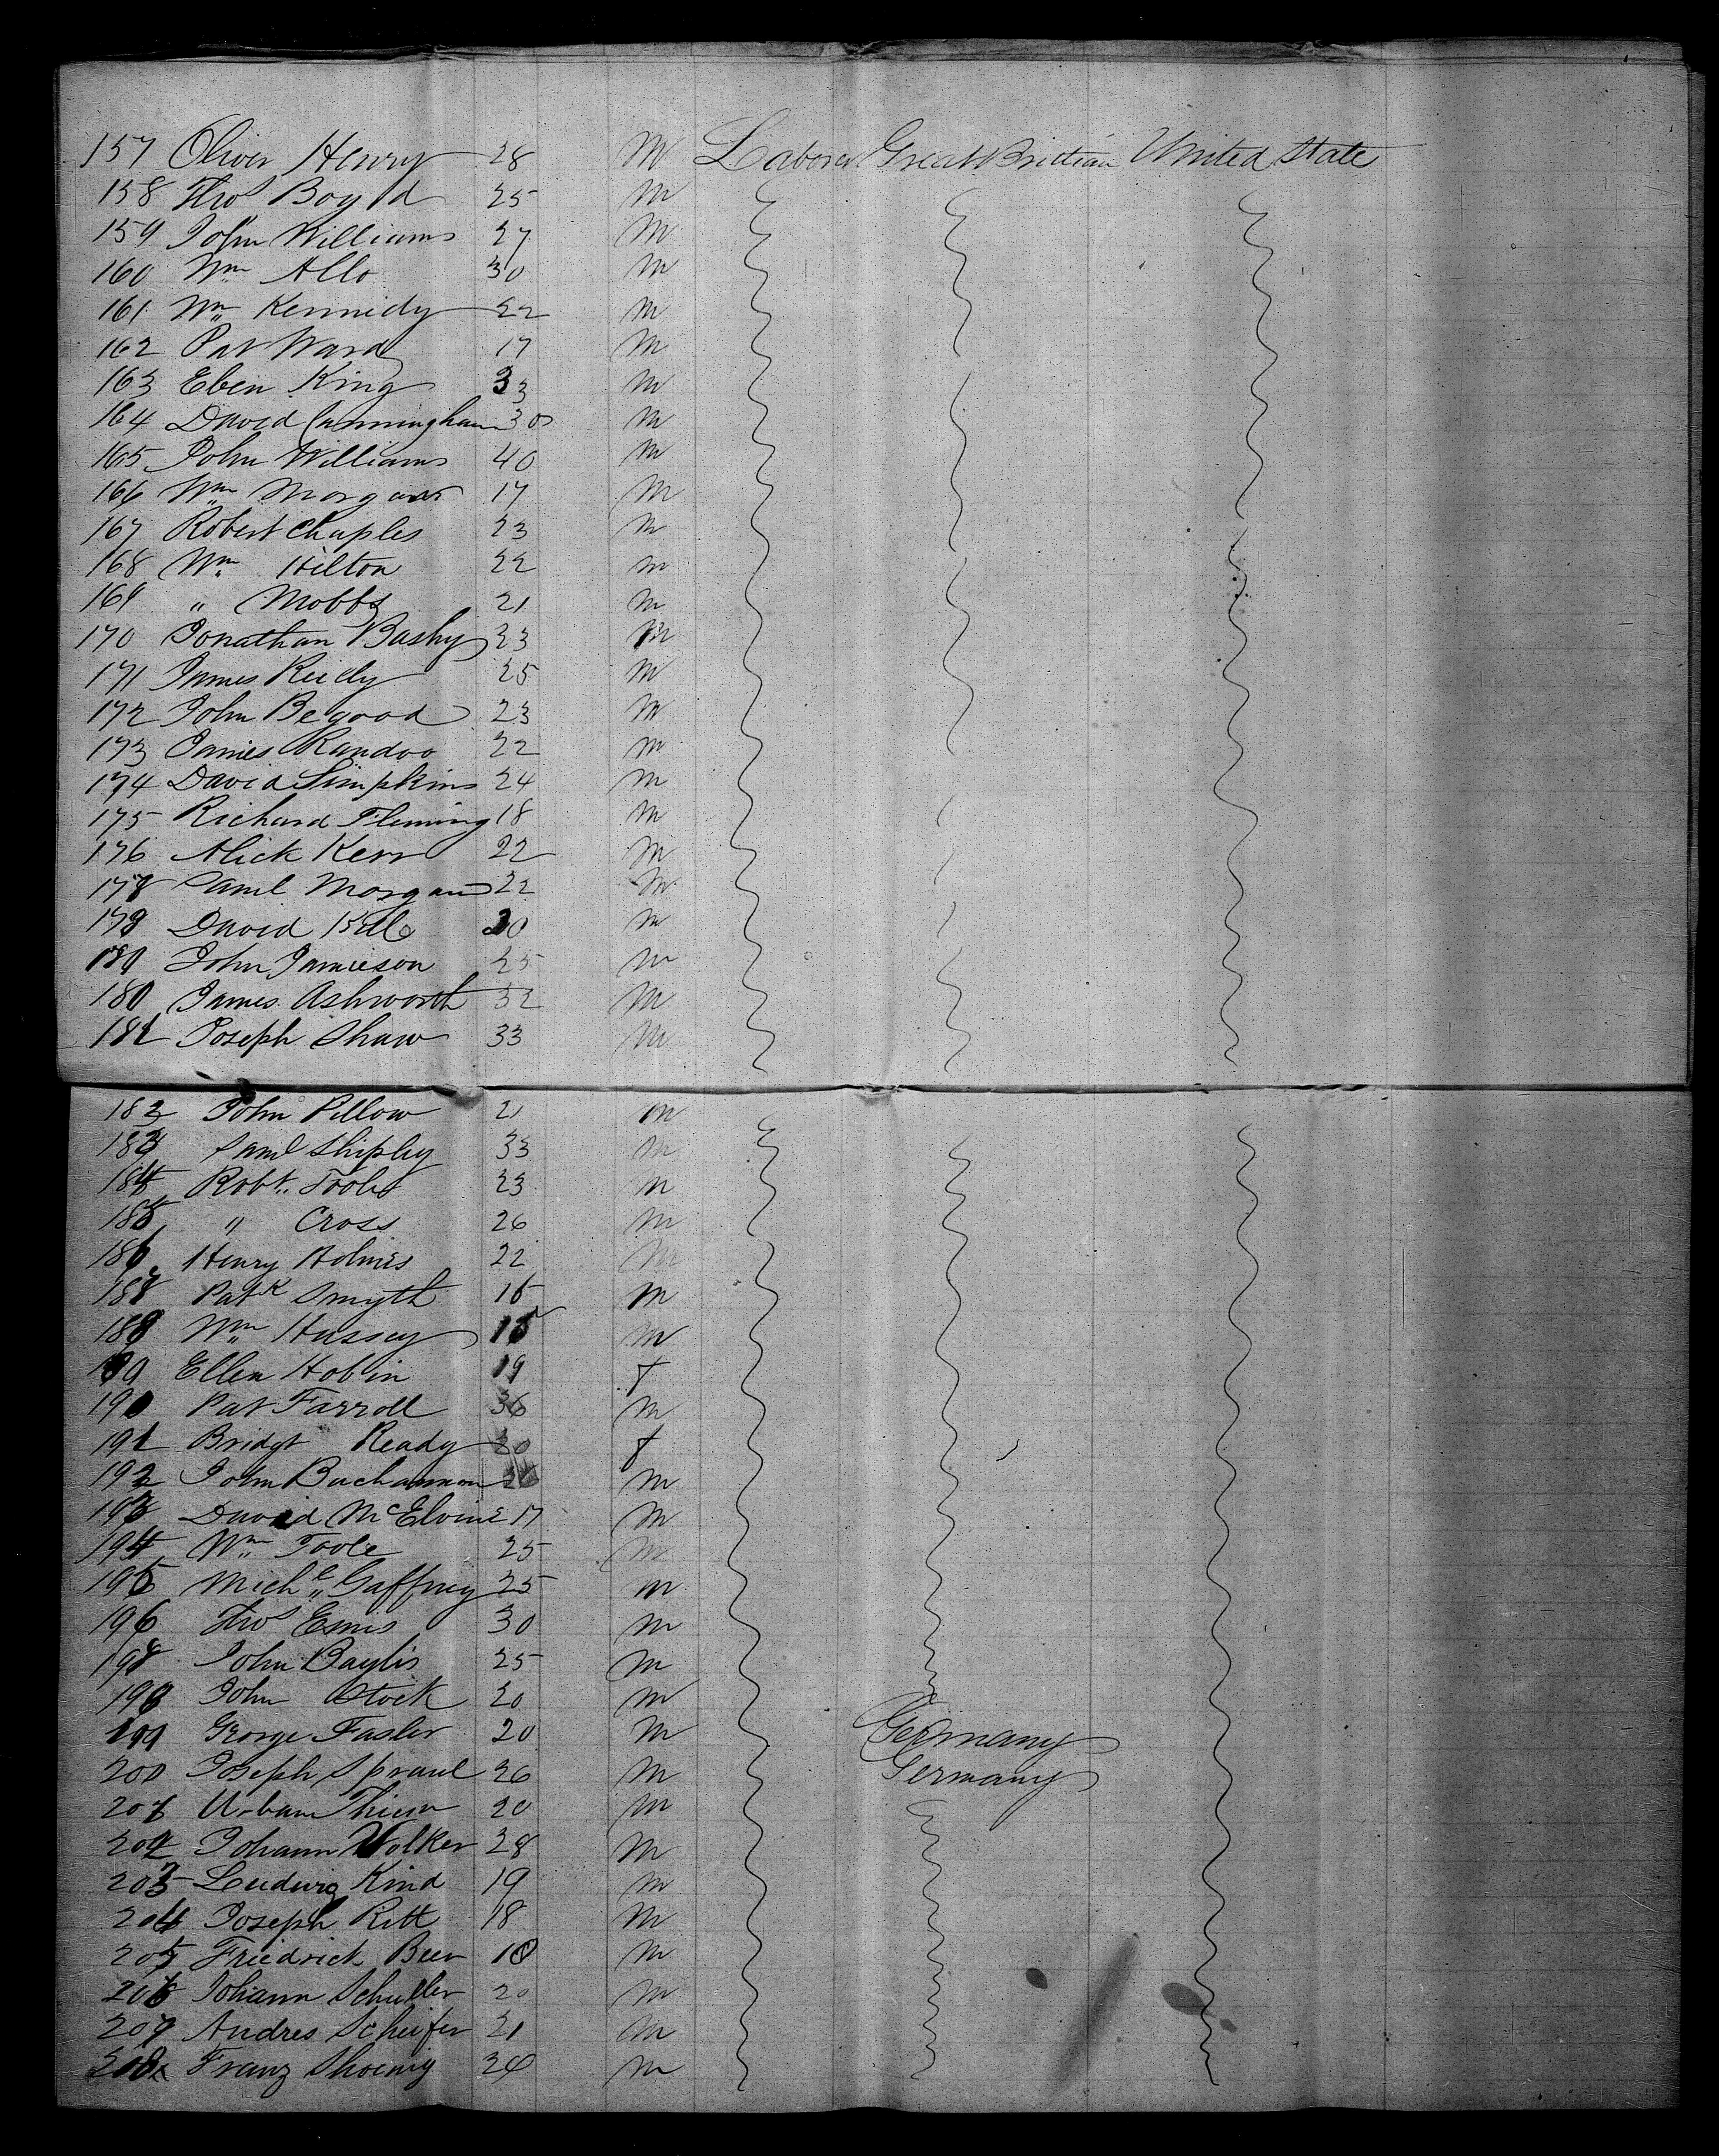 157 Oliver Henry 28 M Laborer Great Brittian United State
158 Thos Boyd 25 M
159 John Williams 27 M
160 Wm Allo 30 M
161 Wm Kennidy 22 M
162 Pat Ward 17 M
163 Eben King 33 M
164 David Cunningham 30 M
165 John Williams 40 M
166 Wm Morgan 17 M
167 Robert Chaples 23 M
168 Wm Hilton 22 M
169 " Mobbs 21 M
170 Jonathan Bashy 23 M
171 James Reidy 25 M
172 John Begood 23 M
173 James Randoo 22 M
174 David Simpkins 24 M
175 Richard Fleming 18 M
176 Alick Kerr 22 M
Saml Morgan 22 M
David 20 M
John Jamieson 25 M
180 James Ashworth 32 M
181 Joseph Shaw 33 M
182 John Pillow 21 M
183 Saml Shipley 33 M
184 Robt Toole 23 M
185 " Cross 26 M
186 Henry Holmes 22 M
Patk Smyth 15 M
Wm Hussey 15 M
Ellen Hobin 19 f
190 Pat Farroll 36 M
191 Bridgt Ready 20 f
192 John Buchannon M
193 David McElvine 17 M
194 Wm Toole 25 M
195 Michl Gaffney 25 M
196 Thos Ennis 30 M
John Baylis 25 M
198 John Stock 20 M
199 George Fasler 20 M Germany
200 Joseph Spraul 26 M Germany
201 Urban Thium 20 M
202 Johann Volker 28 M
203 Ludwig Kind 19 M
204 Joseph Ritt 18 M
205 Friedrick Beer 18 M
206 Johann Schuller 20 M
207 Andres Scheifer 21 M
208 Franz Shoenig 24 M